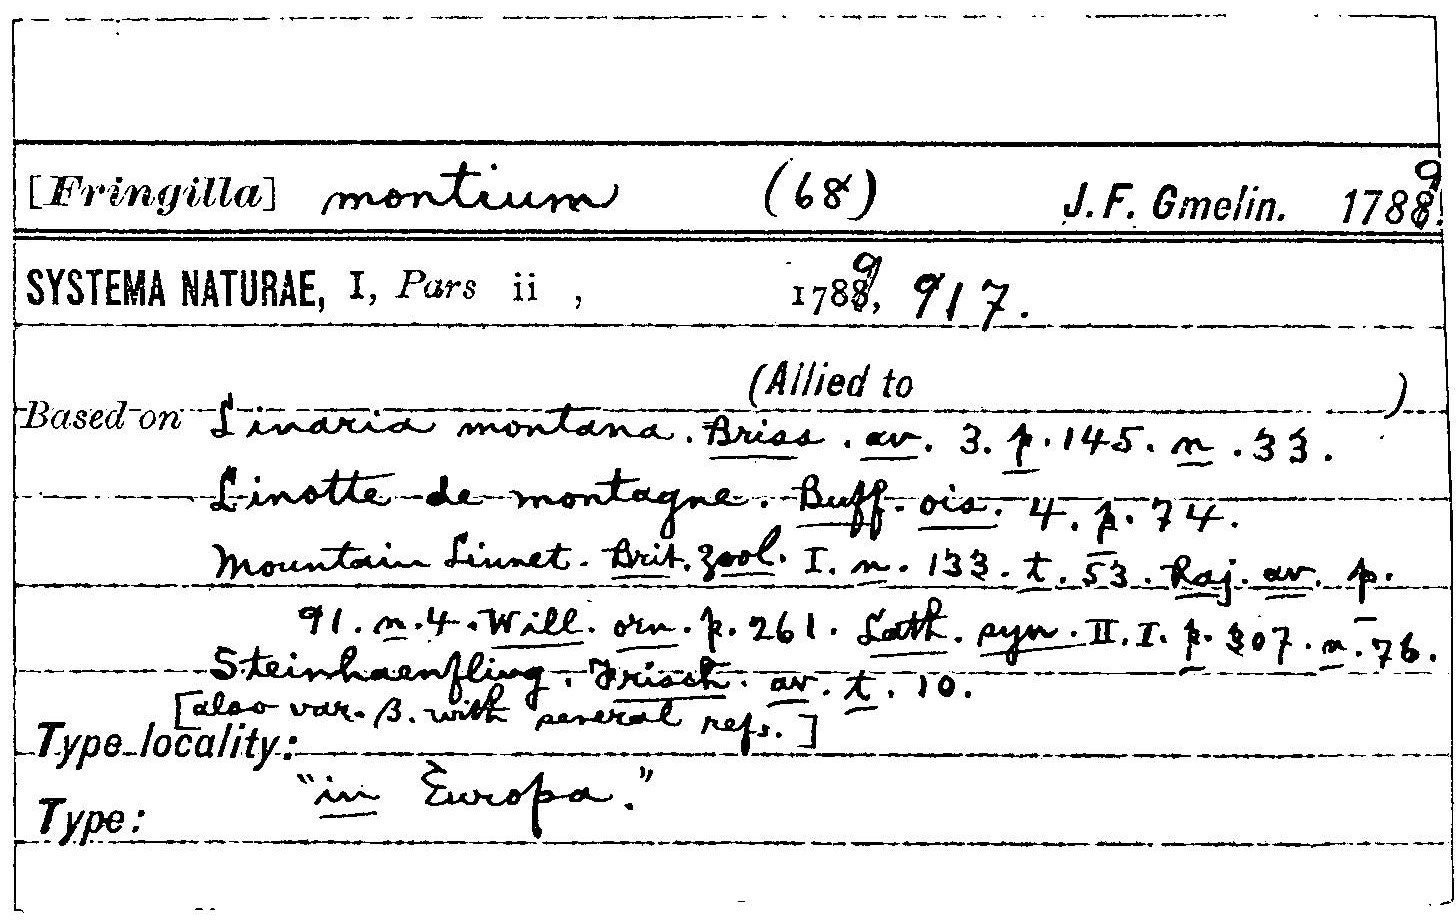 [Fringilla] montium (68) J. F. Gmelin. 1789.
SYSTEMA NATURAE, I, Pars ii , 1789, 917.
(Allied to )
Based on Linaria montana. Briss. av. 3. p. 145. n. 33.
Linotte de montagne. Buff. ois. 4. p. 74.
Mountain Linnet. Brit. Zool. I. n. 133. t. 53. Raj. av. p.
91. n. 4. Will. orn. p. 261. Lath. syn. II. I. p. 307. n. 76.
Steinhaenfling. Frisch. av. t. 10.
[also var. β. with several refs.]
Type locality:
"in Europa."
Type: